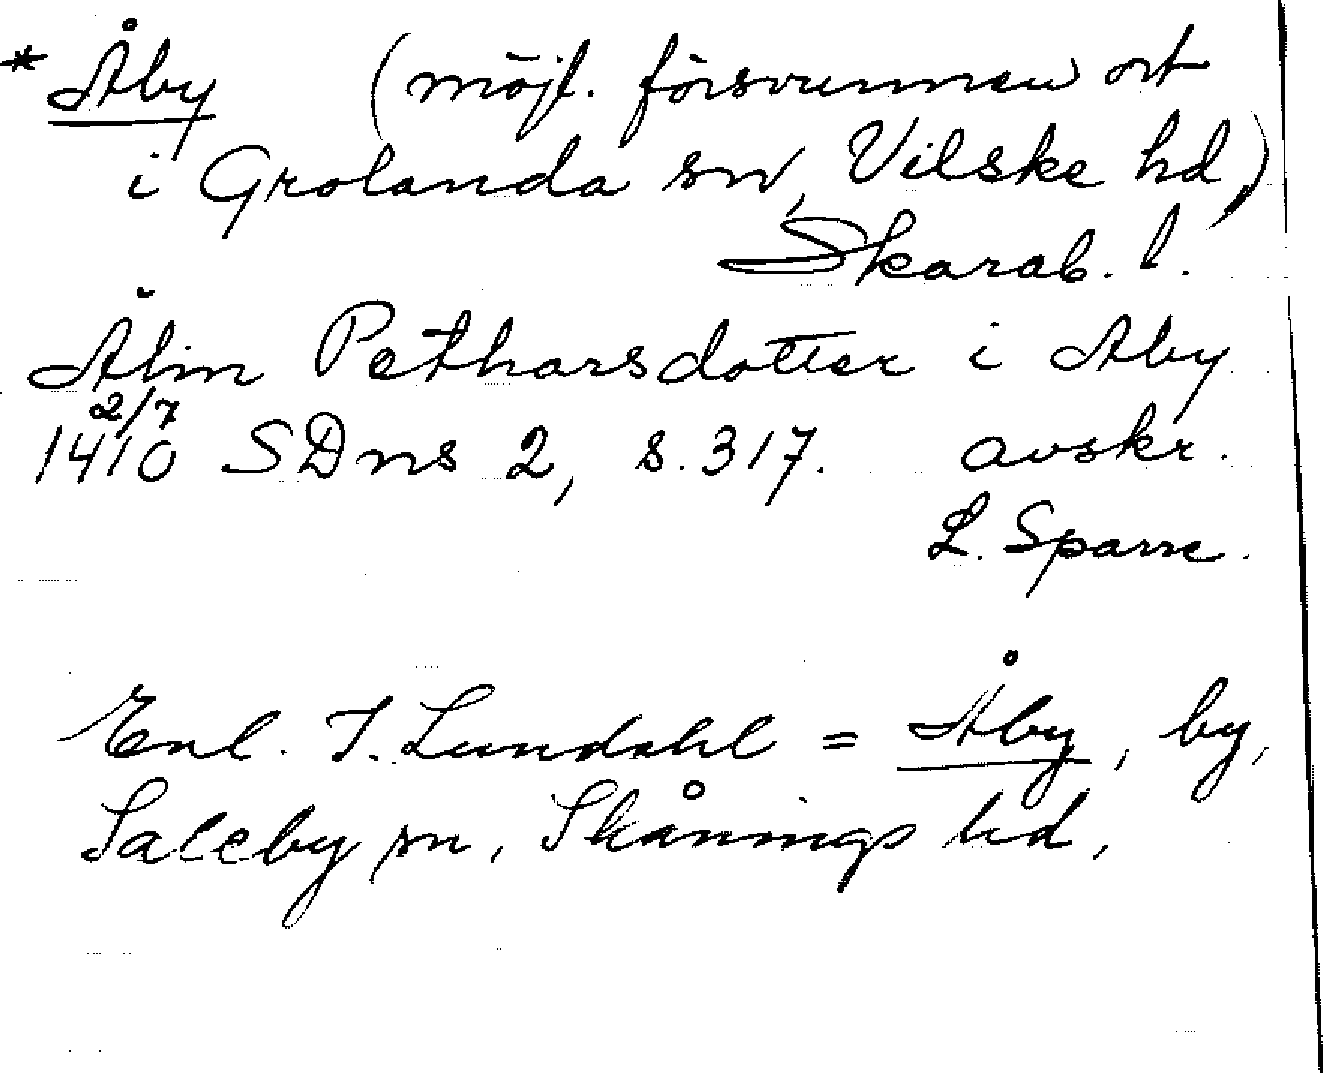 * Åby (möjl. försvunnen ort
i Grolanda sn, Vilske hd,)
Skarab. l.
Älin Petharsdotter i Aby
2/7
1410 SDns 2, s. 317. avskr.
L. Sparre.
Enl. I. Lundahl = Åby, by,
Saleby sn, Skånings hd,